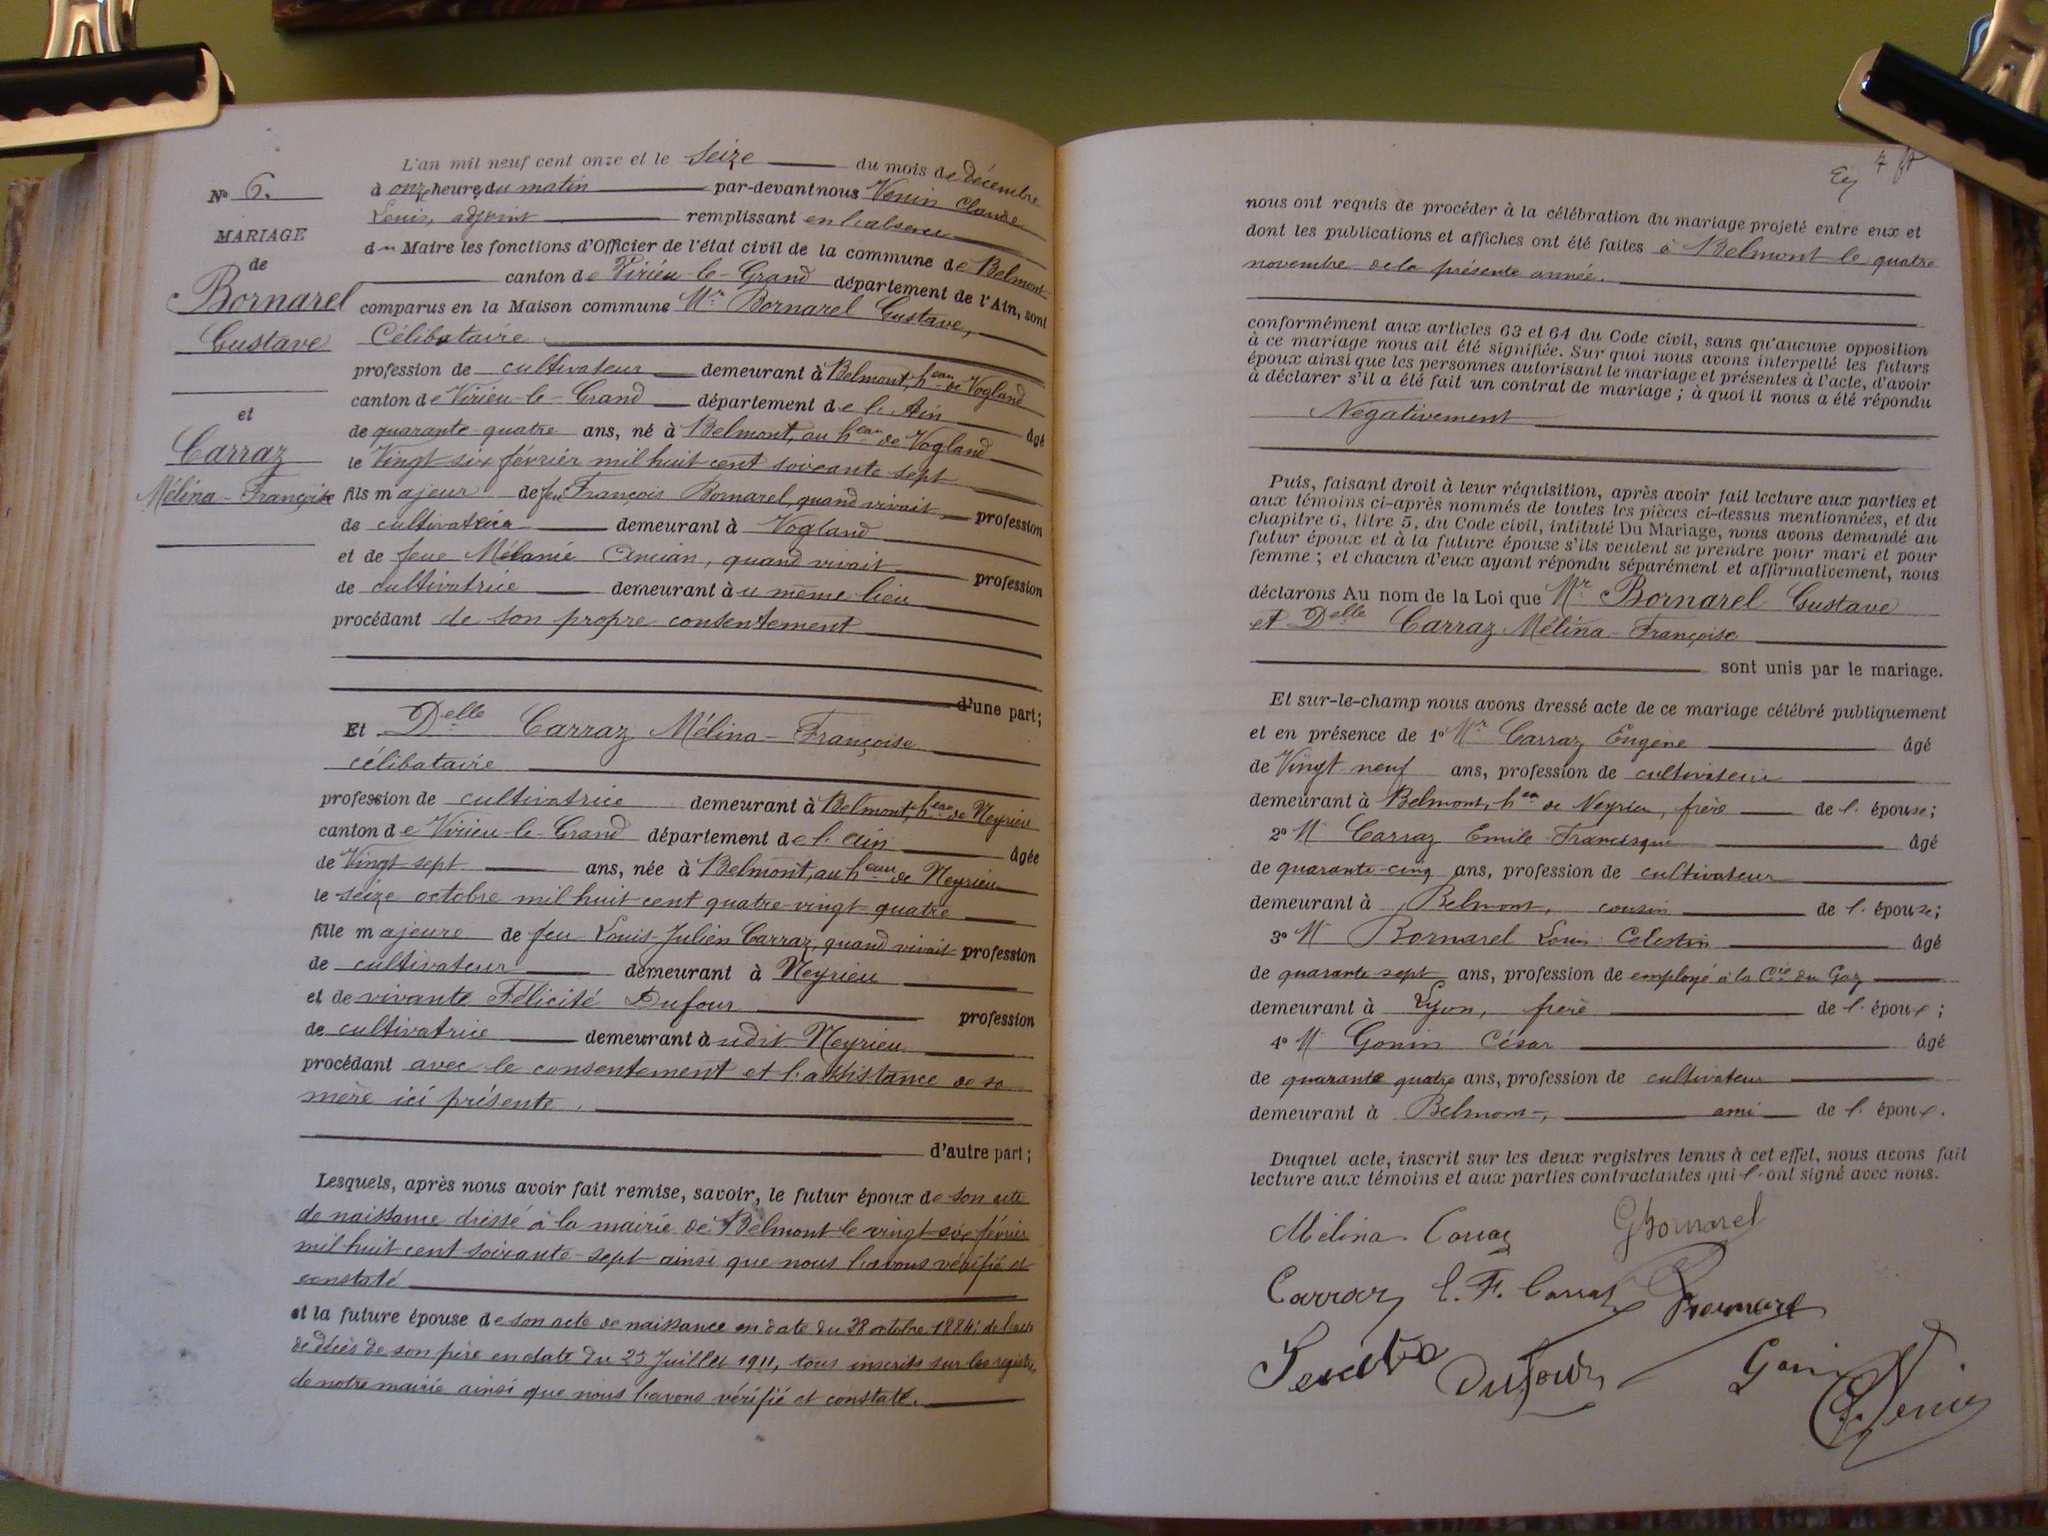 L'an mil neuf cent onze et le seize du mois de décembre
à onze heures du matin par-devant nous Venin Claude
Louis, adjoint remplissant en l'absence
du Maire les fonctions d'Officier de l'état civil de la commune de Belmont
canton de Virieu-le-Grand département de l'Ain, sont
comparus en la Maison commune Mr Bornarel Gustave,
Célibataire
profession de cultivateur demeurant à Belmont, heau de Vogland
canton de Virieu-le-Grand département de l'Ain âgé
de quarante-quatre ans, né à Belmont, au heau de Vogland
le Vingt-six février mil huit cent soixante-sept
fils majeur de feu François Bornarel, quand vivait profession
de cultivateur demeurant à Vogland
et de feue Mélanie Ancian, quand vivait profession
de cultivatrice demeurant au même lieu
procédant de son propre consentement
d'une part;
Et Delle Carraz Mélina-Françoise
célibataire
profession de cultivatrice demeurant à Belmont, heau de Neyrieu
canton de Virieu-le-Grand département de l'Ain âgée
de Vingt-sept ans, née à Belmont, au heau de Neyrieu
le seize octobre mil huit cent quatre-vingt-quatre
fille majeure de feu Louis-Julien Carraz, quand vivait profession
de cultivateur demeurant à Neyrieu
et de vivante Félicité Dufour profession
de cultivatrice demeurant audit Neyrieu
procédant avec le consentement et l'assistance de sa
mère ici présente.
d'autre part;
Lesquels, après nous avoir fait remise, savoir, le futur époux de son acte
de naissance dressé à la mairie de Belmont le vingt-six février
mil huit cent soixante-sept ainsi que nous l'avons vérifié et
constaté
et la future épouse de son acte de naissance en date du 28 octobre 1884; de l'acte
de décès de son père en date du 23 Juillet 1911, tous inscrits sur les registres
de notre mairie ainsi que nous l'avons vérifié et constaté.
No 6.
MARIAGE
de
Bornarel
Gustave
et
Carraz
Mélina-Françoise
nous ont requis de procéder à la célébration du mariage projeté entre eux et
dont les publications et affiches ont été faites à Belmont le quatre
novembre de la présente année.
conformément aux articles 63 et 64 du Code civil, sans qu'aucune opposition
à ce mariage nous ait été signifiée. Sur quoi nous avons interpellé les futurs
époux ainsi que les personnes autorisant le mariage et présentes à l'acte, d'avoir
à déclarer s'il a été fait un contrat de mariage; à quoi il nous a été répondu
Négativement
Puis, faisant droit à leur réquisition, après avoir fait lecture aux parties et
aux témoins ci-après nommés de toutes les pièces ci-dessus mentionnées, et du
chapitre 6, titre 5, du Code civil, intitulé Du Mariage, nous avons demandé au
futur époux et à la future épouse s'ils veulent se prendre pour mari et pour
femme; et chacun d'eux ayant répondu séparément et affirmativement, nous
déclarons Au nom de la Loi que Mr Bornarel Gustave
et Delle Carraz Mélina-Françoise
sont unis par le mariage.
Et sur-le-champ nous avons dressé acte de ce mariage célébré publiquement
et en présence de 1° Mr Carraz Eugène âgé
de Vingt-neuf ans, profession de cultivateur
demeurant à Belmont, heau de Neyrieu, frère de l'épouse;
2° M Carraz Emile Francisque âgé
de quarante-cinq ans, profession de cultivateur
demeurant à Belmont, cousin de l'épouse;
3° M Bornarel Louis Célestin âgé
de quarante-sept ans, profession de employé à la Cie du Gaz
demeurant à Lyon, frère de l'époux;
4° M Gonin César âgé
de quarante quatre ans, profession de cultivateur
demeurant à Belmont, ami de l'époux.
Duquel acte, inscrit sur les deux registres tenus à cet effet, nous avons fait
lecture aux témoins et aux parties contractantes qui l'ont signé avec nous.
Mélina Carraz GBornarel
Carraz E. F. Carraz Bornarel
Dufour Gonin
C. L. Venin